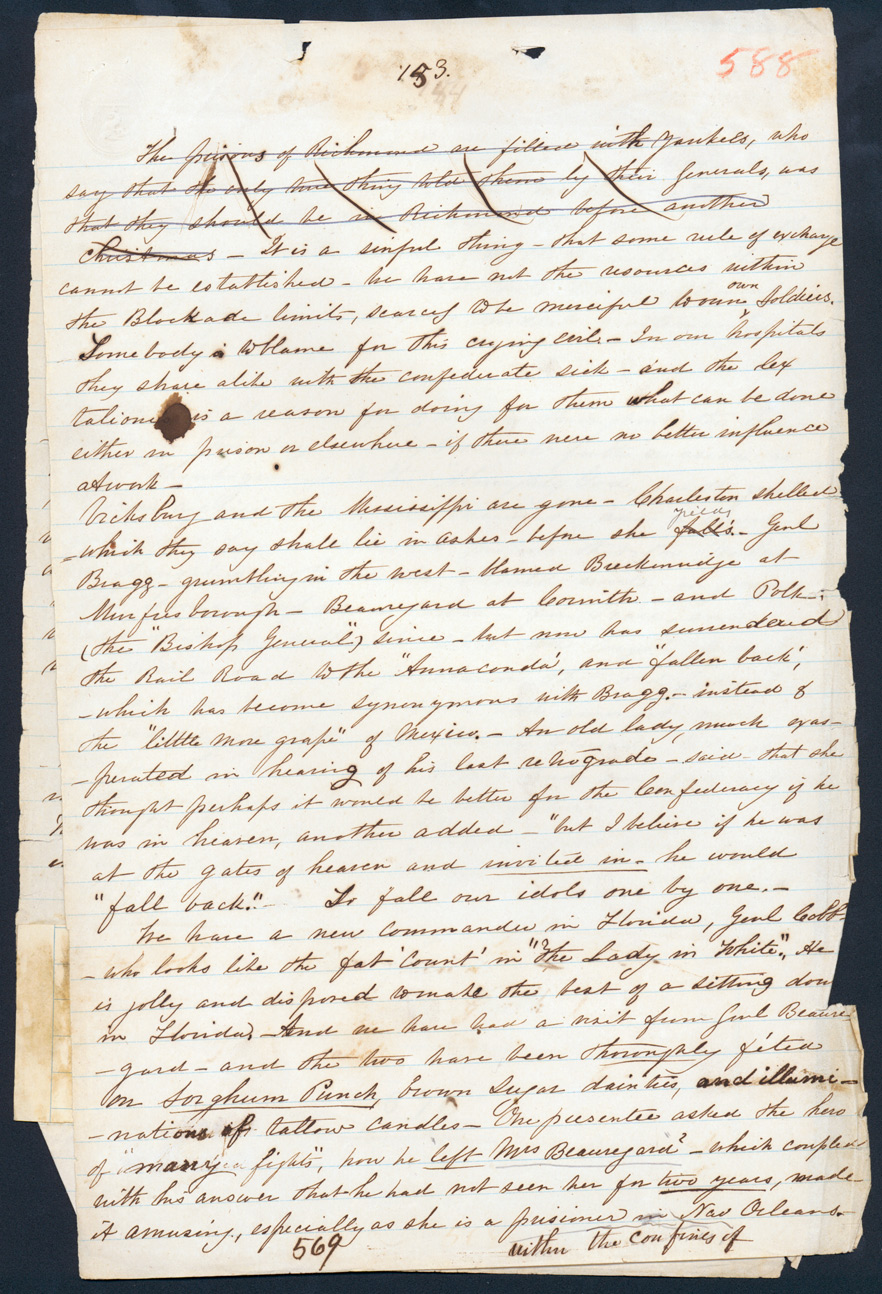 153.
588
The prisons of Richmond are filled with Yankees, who
say that the only true thing told them by their Generals, was
that they should be in Richmond before another
Christmas — It is a sinful thing — that some rule of exchange
cannot be established — we have not the resources within
the Blockade limits, scarcely to be merciful to our own Soldiers.
Somebody is to blame for this crying evil — In our hospitals
they share alike with the confederate sick — and the lex
talionis is a reason for doing for them what can be done
either in prison or elsewhere — if there were no better influence
at work —
Vicksburg and the Mississippi are gone — Charleston shelled
— which they say shall lie in ashes — before she falls yields — Genl
Bragg — grumbling in the west — blamed Breckenridge at
Murfresborough — Beauregard at Corinth — and Polk —
(the "Bishop General") since — but now has surrendered
the Rail Road to the "Annaconda", and "fallen back",
— which has become synonymous with Bragg — instead of
the "little more grape" of Mexico. — An old lady, much exas-
-perated in hearing of his last retrograde — said — that she
thought perhaps it would be better for the Confederacy if he
was in heaven, another added — "but I believe if he was
at the gates of heaven and invited in — he would
"fall back." — So fall our idols one by one. —
We have a new commander in Florida, Genl Cobb
— who looks like the fat 'Count' in "The Lady in White". He
is jolly and disposed to make the best of a sitting down
in Florida) — And we have had a visit from Genl Beaure-
-gard — and the two have been thoroughly fêted
on Sorghum Punch, brown Sugar dainties, and illumi-
-nations of tallow candles — One presentee asked the hero
of "many fights", how he left Mrs Beauregard? — which coupled
with his answer that he had not seen her for two years, made
it amusing, especially as she is a prisioner in New Orleans.
within the confines of
569